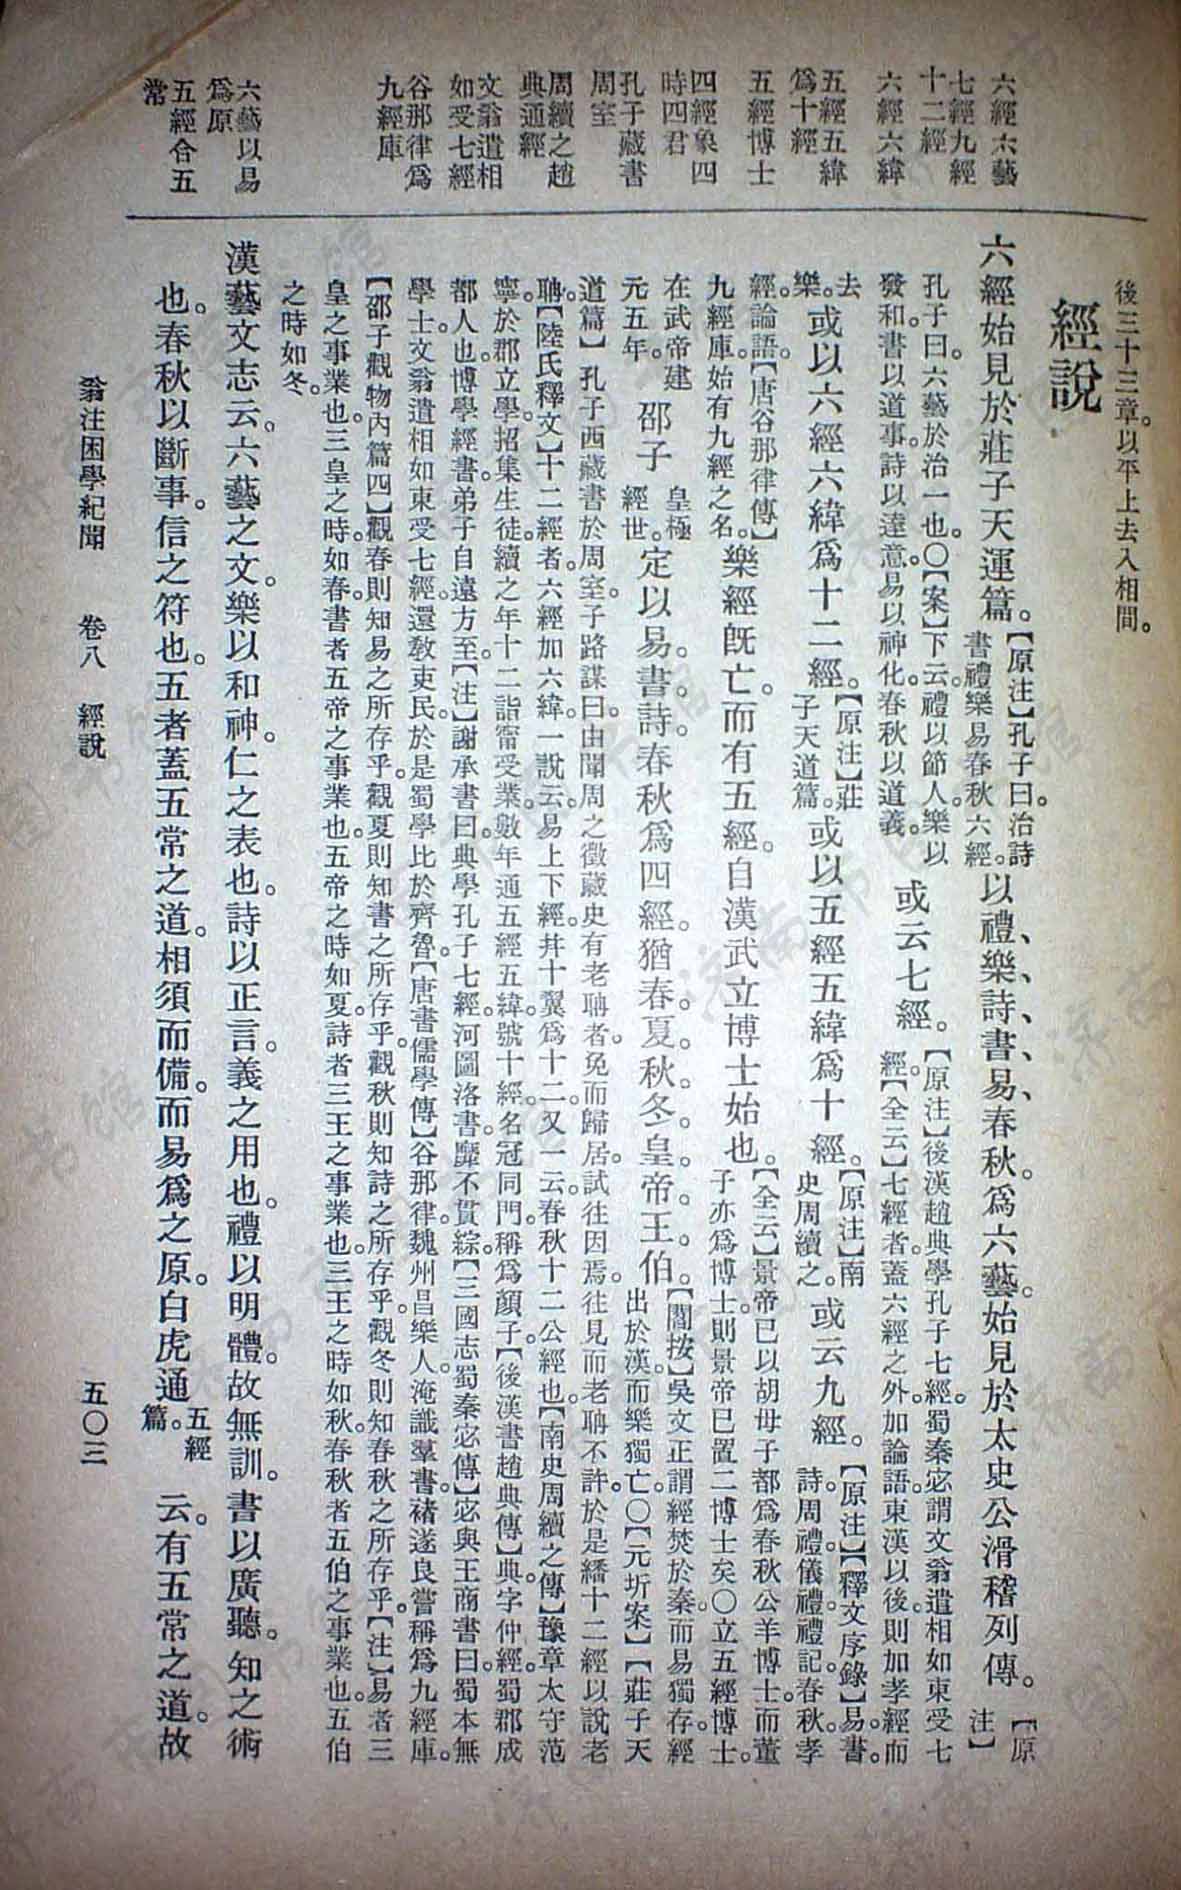 後三十三章。以平上去入相間。
經說
六經六藝
七經九經
十二經
六經六緯
五經五緯
爲十經
五經博士
四經象四
時四君
孔子藏書
周室
周續之趙
典通經
文翁遣相
如受七經
谷那律爲
九經庫
六藝以易
爲原
五經合五
常
六經始見於莊子天運篇。【原注】孔子曰。治詩書禮樂易春秋六經。以禮、樂、詩、書、易、春秋。爲六藝。始見於太史公滑稽列傳。【原注】
孔子曰。六藝於治一也。〇【案】下云。禮以節人。樂以發和。書以道事。詩以達意。易以神化。春秋以道義。或云七經。【原注】後漢趙典學孔子七經。蜀秦宓謂文翁遣相如東受七經。【全云】七經者。蓋六經之外。加論語。東漢以後。則加孝經而
去樂。或以六經六緯爲十二經。【原注】莊子天道篇。或以五經五緯爲十經。【原注】南史周續之。或云九經。【原注】【釋文序錄】易。書。詩。周禮。儀禮。禮記。春秋。孝
經。論語。【唐谷那律傳】九經庫。始有九經之名。樂經旣亡。而有五經。自漢武立博士始也。【全云】景帝已以胡毋子都爲春秋公羊博士。而董子亦爲博士。則景帝已置二博士矣。〇立五經博士。
在武帝建元五年。邵子皇極經世。定以易。書。詩。春秋爲四經。猶春。夏。秋。冬。皇。帝。王。伯。【閻按】吳文正謂經焚於秦。而易獨存。經出於漢。而樂獨亡。〇【元圻案】【莊子天
道篇】孔子西藏書於周室。子路謀曰。由聞周之徵藏史有老聃者。免而歸居。試往因焉。往見而老聃不許。於是繙十二經以說老
聃。【陸氏釋文】十二經者。六經加六緯。一說云。易上下經。幷十翼爲十二。又一云。春秋十二公經也。【南史周續之傳】豫章太守范
寧。於郡立學。招集生徒。續之年十二。詣甯受業。數年通五經五緯。號十經。名冠同門。稱爲顏子。【後漢書趙典傳】典字仲經。蜀郡成
都人也。博學經書。弟子自遠方至。【注】謝承書曰。典學孔子七經。河圖洛書。靡不貫綜。【三國志蜀秦宓傳】宓與王商書曰。蜀本無
學士。文翁遣相如東受七經。還敎吏民。於是蜀學比於齊魯。【唐書儒學傳】谷那律。魏州昌樂人。淹識羣書。褚遂良嘗稱爲九經庫。
【邵子觀物內篇四】觀春則知易之所存乎。觀夏則知書之所存乎。觀秋則知詩之所存乎。觀冬則知春秋之所存乎。【注】易者三
皇之事業也。三皇之時。如春。書者五帝之事業也。五帝之時如夏。詩者三王之事業也。三王之時如秋。春秋者五伯之事業也。五伯
之時如冬。
漢藝文志云。六藝之文。樂以和神。仁之表也。詩以正言。義之用也。禮以明體。故無訓。書以廣聽。知之術
也。春秋以斷事。信之符也。五者蓋五常之道。相須而備。而易爲之原。白虎通五經篇。云。有五常之道。故
翁注困學紀聞　卷八　經說　五〇三